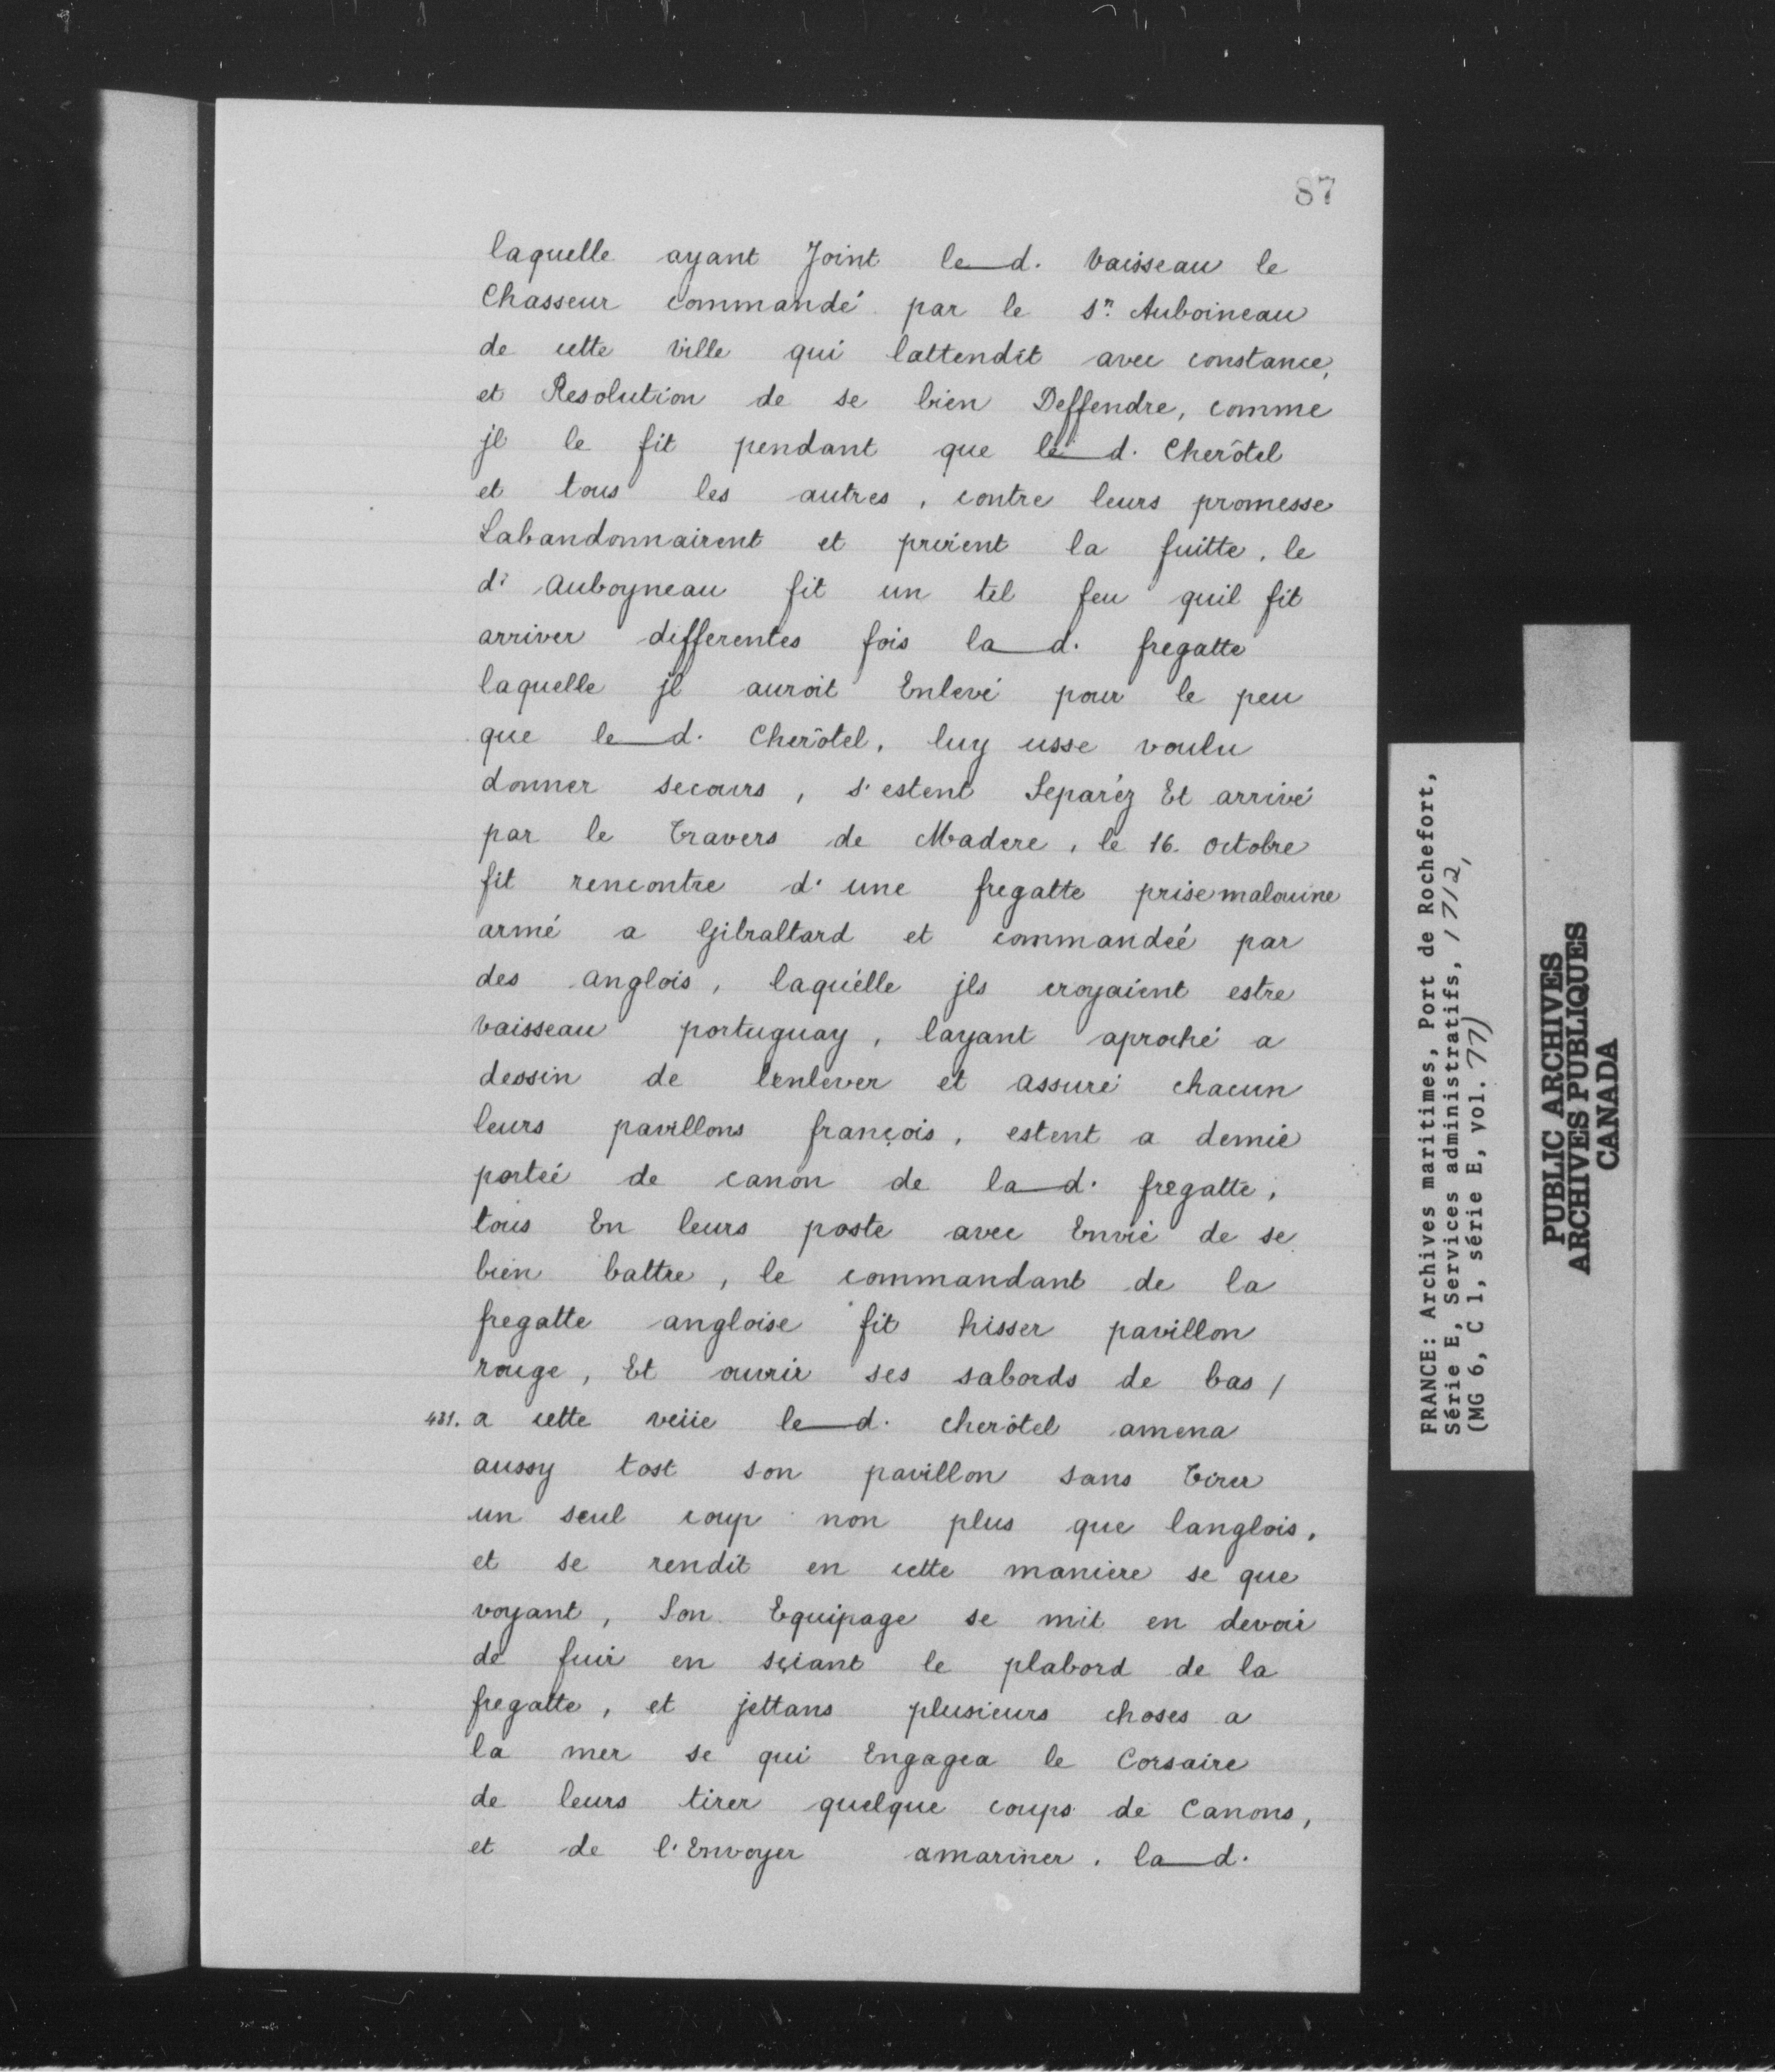 87
laquelle ayant Joint le d. Vaisseau le
Chasseur commandé par le Sr. Auboineau
de cette Ville qui lattendit avec constance,
et Resolution de se bien Deffendre, comme
jl le fit pendant que le d. Cherôtel
et tous les autres, contre leurs promesse
Labandonnairent et prirent la fuitte, le
d. Auboyneau fit un tel feu quil fit
arriver differentes fois la d. fregatte
laquelle jl auroit Enlevé pour le peu
que le d. Cherôtel, luy usse voulu
donner secours, s'estent Separéz Et arrivé
par le Travers de Madere, le 16. octobre
fit rencontre d'une fregatte prise malouine
armé a Gibraltard et commandeé par
des anglois, laquélle jls croyaient estre
Vaisseau portuguay, layant aproché a
dessin de l'enlever et assuré chacun
leurs pavillons françois, estent a demie
porteé de canon de la d. fregatte,
tous En leurs poste avec Envie de se
bien battre, le commandant de la
fregatte angloise fit hisser pavillon
rouge, Et ouvrir ses sabords de bas /
431. a cette veüe le d. cherôtel amena
aussy tost son pavillon sans Tirer
un seul coup non plus que langlois,
et se rendit en cette maniere se que
voyant, Son Equipage se mit en devoir
de fuir en sçiant le plabord de la
fregatte, et jettans plusieurs choses a
la mer se qui Engagea le Corsaire
de leurs tirer quelque coups de Canons,
et de l'Envoyer amariner, la d.
FRANCE: Archives maritimes, Port de Rochefort,
Série E, Services administratifs, 1712,
(MG 6, C 1, série E, vol. 77)
PUBLIC ARCHIVES
ARCHIVES PUBLIQUES
CANADA